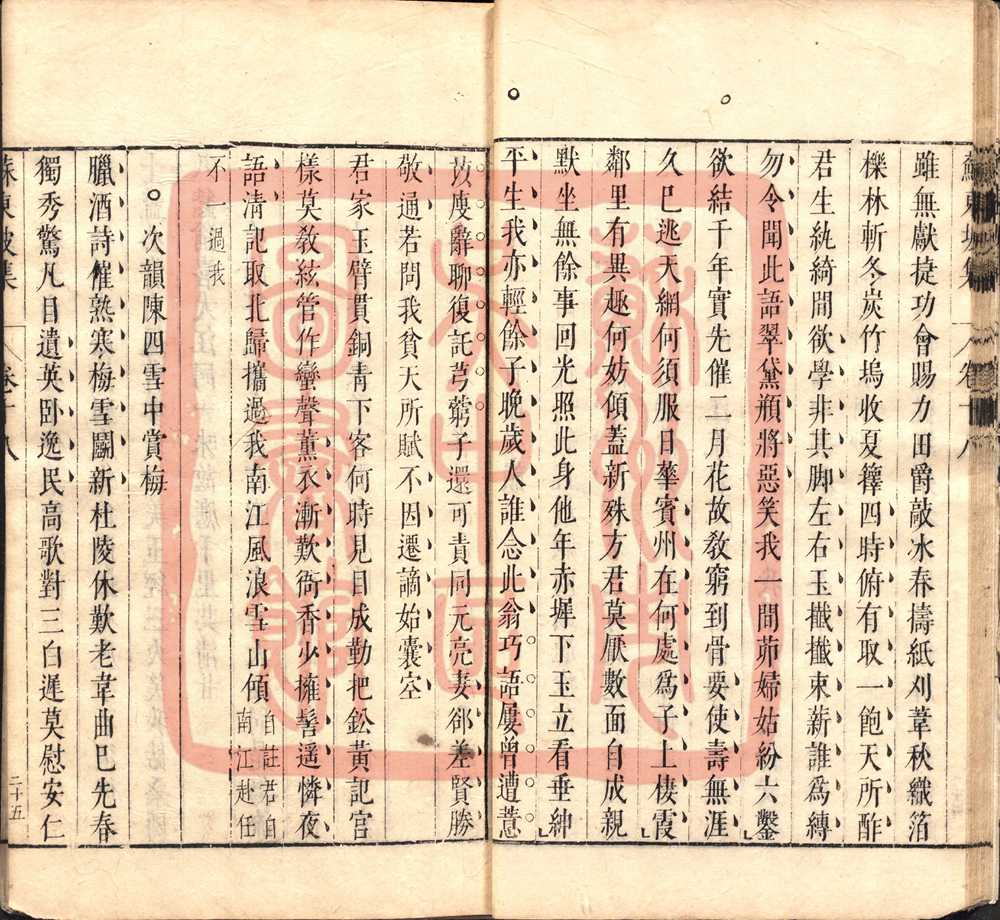 蘇東坡集 卷十八
雖無獻捷功會賜力田爵敲冰春擣紙刈葦秋織箔
櫟林斬冬炭竹塢收夏籜四時俯有取一飽天所酢
君生紈綺間欲學非其脚左右玉攕攕束薪誰爲縛
勿令聞此語翠黛頩將惡笑我一間茆婦姑紛六鑿
欲結千年實先催二月花故敎窮到骨要使壽無涯
久已逃天網何須服日華賓州在何處爲子上棲霞
鄰里有異趣何妨傾蓋新殊方君莫厭數面自成親
默坐無餘事回光照此身他年赤墀下玉立看垂紳
平生我亦輕餘子晚歲人誰念此翁巧語屢曾遭薏
苡廋辭聊復託芎藭子還可責同元亮妻郤差賢勝
敬通若問我貧天所賦不因遷謫始囊空
君家玉臂貫銅青下客何時見目成勤把鈆黃記宮
樣莫敎絃管作蠻聲薰衣漸歎衙香少擁髻遥憐夜
語淸記取北歸攜過我南江風浪雪山傾 自註君自南江赴任
不一過我
次韻陳四雪中賞梅
臘酒詩催熟寒梅雪鬭新杜陵休歎老韋曲已先春
獨秀驚凡目遺英卧逸民高歌對三白遲莫慰安仁
蘇東坡集 卷十八 二十五